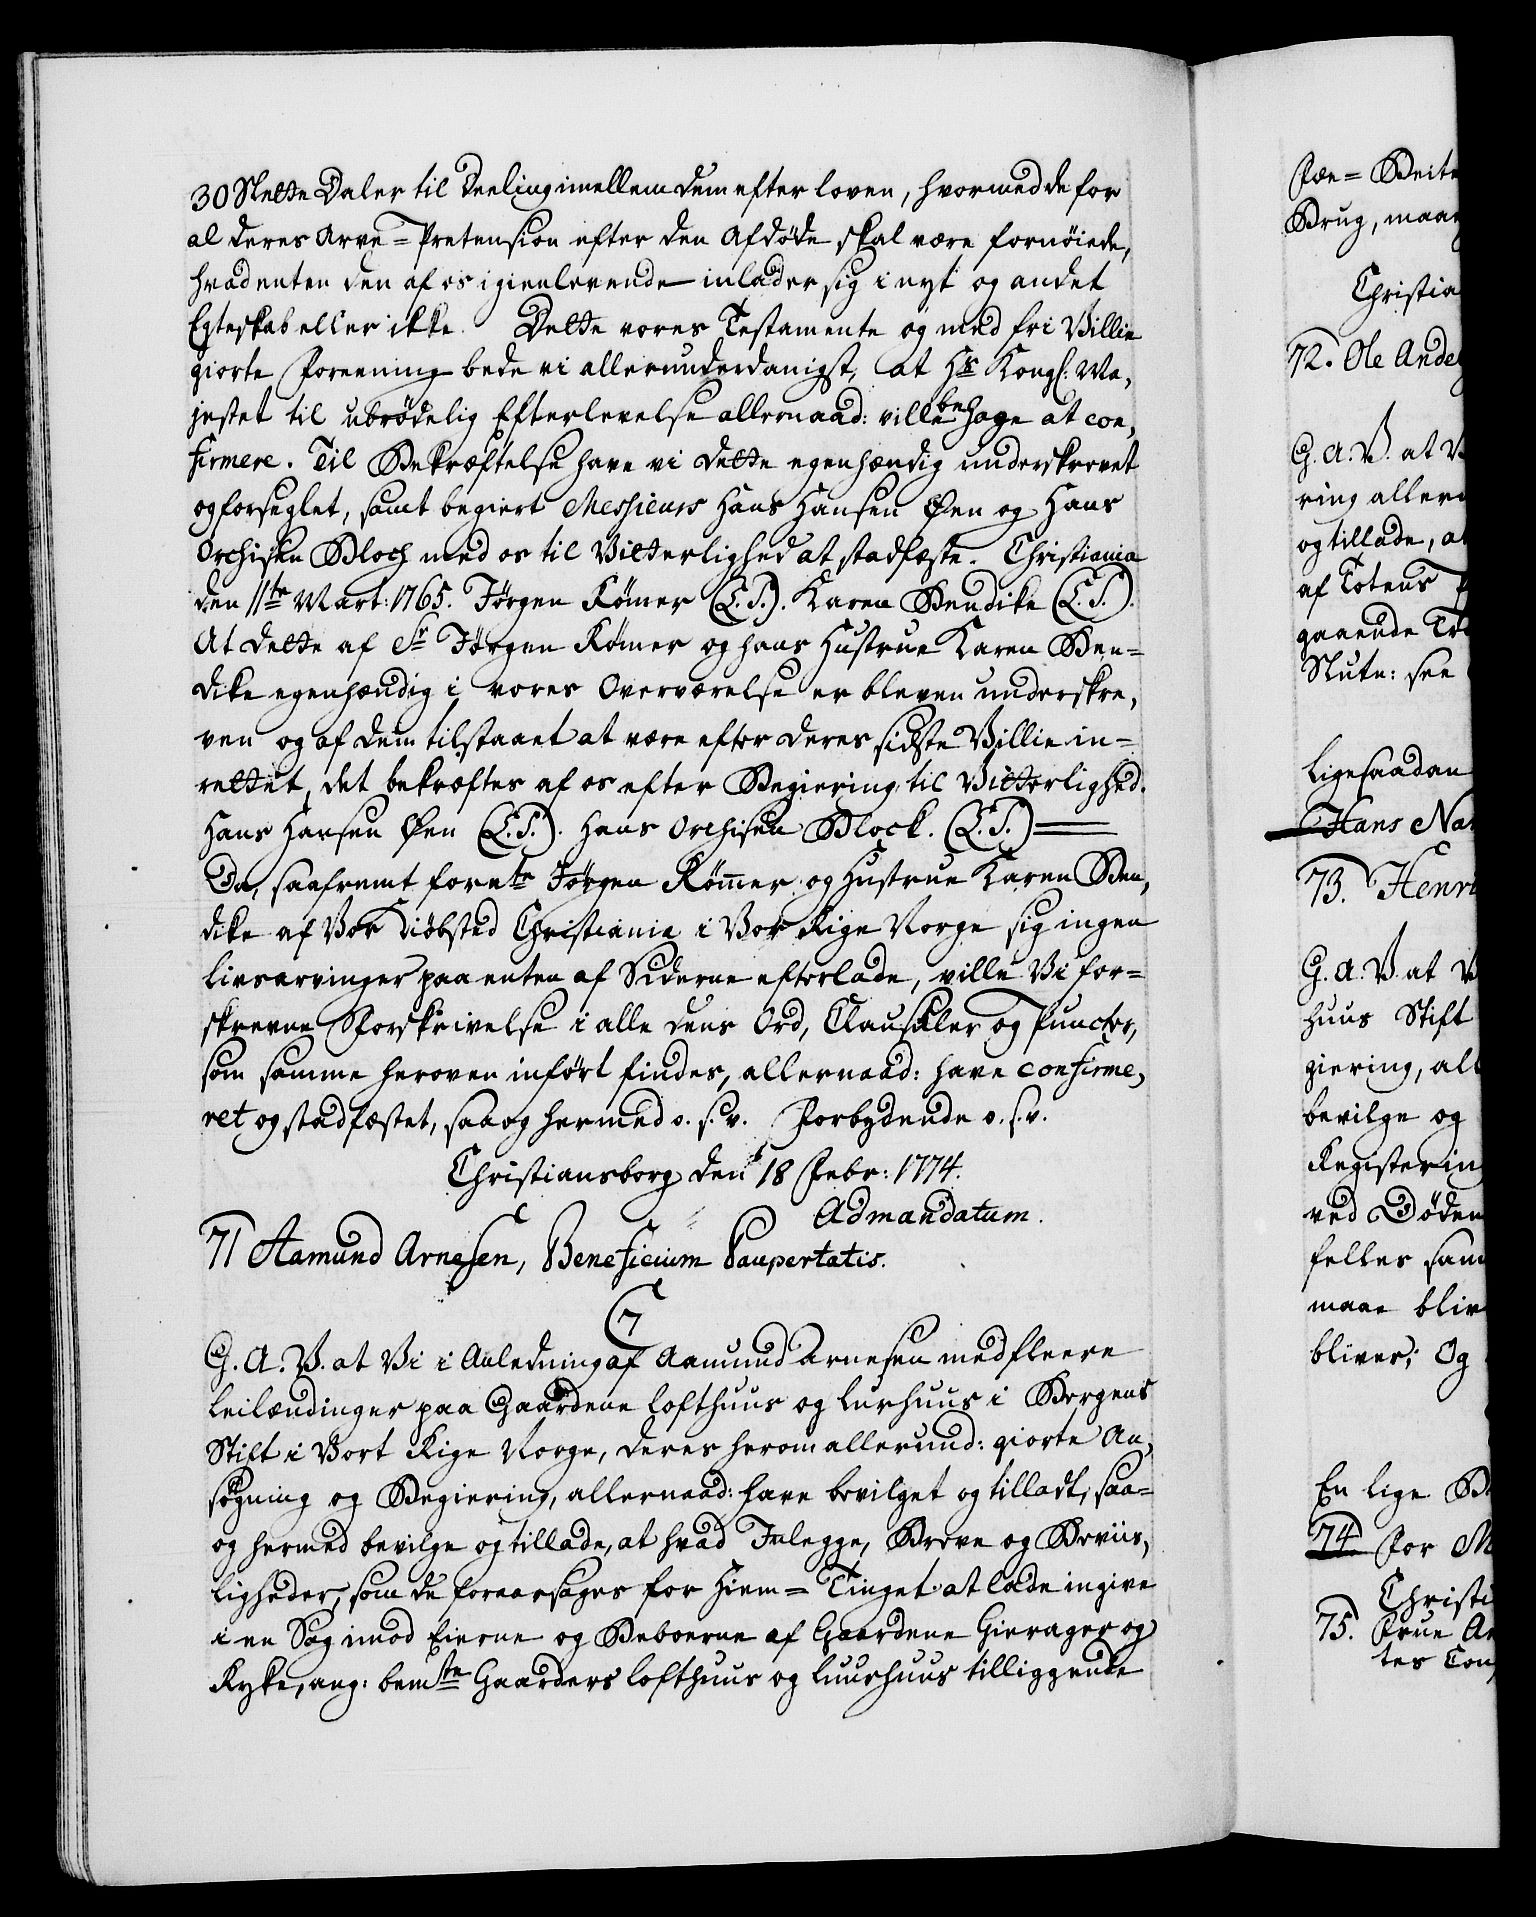 30 Slette Daler til Deeling imellem dem efter loven, hvormed de for
al deres Arve=Pretension efter den Afdøde skal være fornøiede,
hvad enten den af os igienlevende inlader sig i nyt og andet
Egteskab eller ikke. Dette vores Testamente og med fri Villie
giorte Foreening bede vi allerunderdanigst, at Hs Kongl: Ma,
jestet til ubrødelig Efterlevelse allernaad: ville behage at con,
firmere. Til Bekræftelse have vi dette egenhændig underskrevet
og forseglet, samt begiert Messieurs Hans Hansen Øen og Hans
Orchisen Bloch med os til Vitterlighed at stadfæste. Christiania
den 11te Mart: 1765. Jørgen Rømer (L.S.). Karen Bendike (L.S.).
At dette af Sr Jørgen Rømer og hans Hustrue Karen Ben=
dike egenhændig i vores Overværelse er bleven underskre,
ven og af dem tilstaaet at være efter deres sidste Villie in=
rettet, det bekræftes af os efter Begiering til Vitterlighed.
Hans Hansen Øen (L.S.). Hans Orchisen Block. (L.S.)
Da, saafremt forente Jørgen Rømer og Hustrue Karen Ben,
dike af Vor Kiøbsted Christiania i Vor Rige Norge sig ingen
livsarvinger paa enten af Siderne efterlade, ville Vi for=
skrevne Forskrivelse i alle dens Ord, Clausuler og Puncter,
som samme heroven inført findes, allernaad: have confirme,
ret og stadfæstet, saa og hermed o. s. v. Forbydende o. s. v.
Christiansborg den 18 Febr: 1774.
Admandatum.
71 Aamund Arnesen, Beneficium Paupertatis.
C7
G. A. V. at Vi i Anledning af Aamund Arnesen med fleere
leilændinger paa Gaardene lofthuus og lurhuus i Bergens
Stift i Vort Rige Norge, deres herom allerund: giorte An,
søgning og Begiering, allernaad: have bevilget og tilladt, saa=
og hermed bevilge og tillade, at hvad Inlegge, Breve og Beviis,
ligheder, som de foraarsages for Hiem=Tinget at lade ingive
i en Sag imod Eierne og Beboerne af Gaardene Hierager og
Ryke, ang: bemte Gaarders lofthuus og luurhuus tilliggende
Fæe=Beite
Brug, maae
Christia
72. Ole Ande
G. A. V. at V
ring aller
og tillade, at
af Totens
gaaende
Slutn: see
ligesaadan
Hans Na
73. Henri
G. A. V. at V
huus Stift
giering, all
bevilge og
Registerin
ved Døden
felles sam
maae bliv
bliver; Og
En lige B
74 for M
Christi
75. Frue An
tes Con